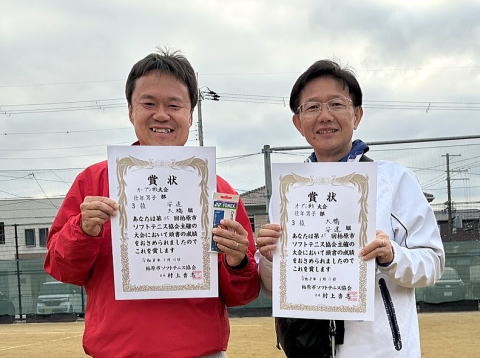 賞状
オープン杯大会
3位 安達
壮年男子部 大嶋 組
あなたは第 回柏原市
ソフトテニス協会主催の
大会において頭書の成績
をおさめられましたので
これを賞します
柏原市ソフトテニス協会
会長 村上
YONEX
賞状
オープン杯大会
3位 大嶋
壮年男子部 安達 組
あなたは第 回柏原市
ソフトテニス協会主催の
大会において頭書の成績
をおさめられましたので
これを賞します
柏原市ソフトテニス協会
会長 村上